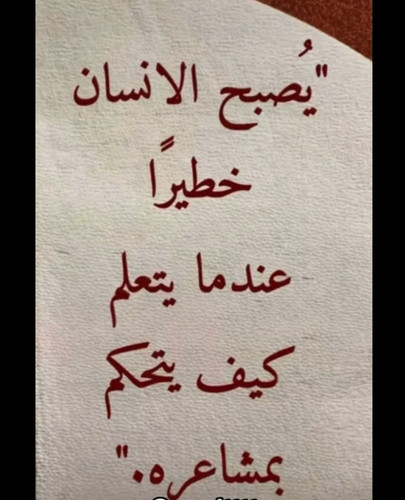 "يُصبح الانسان
خطيرًا
عندما يتعلم
كيف يتحكم
بمشاعره."